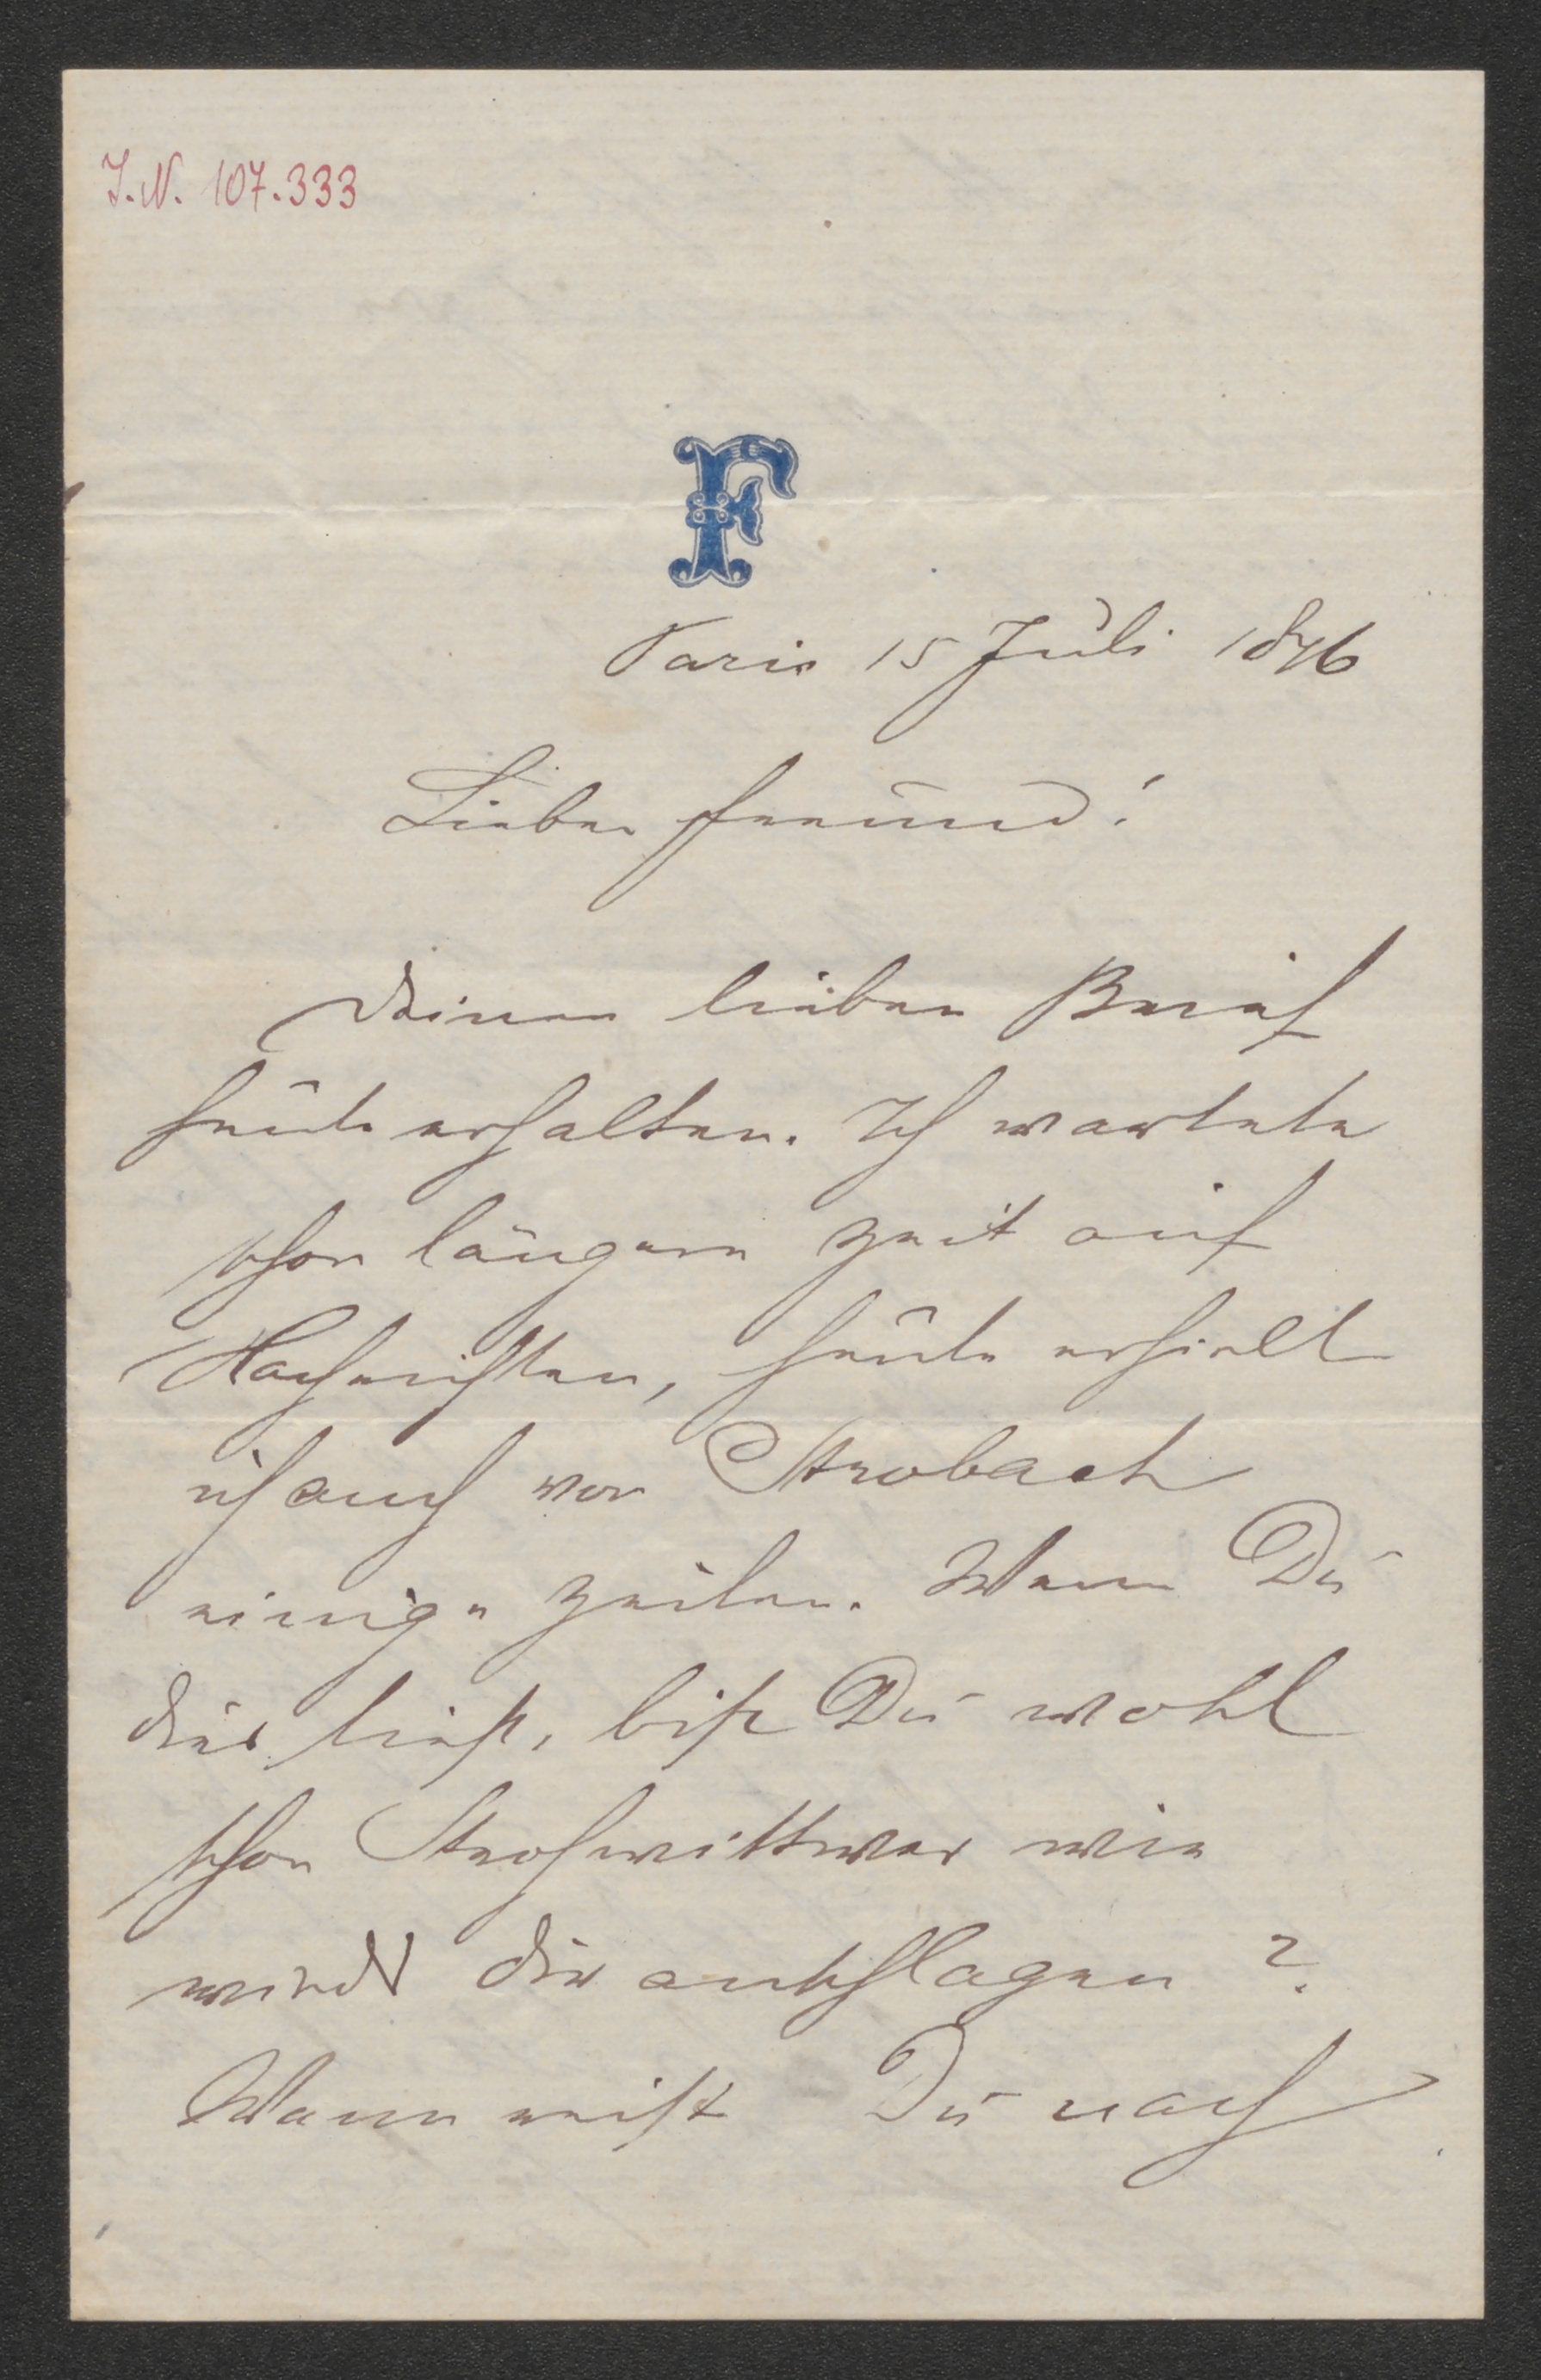 J.N. 107.333
F
Paris 15 Juli 1876
Lieber Freund!
Deinen lieben Brief
heute erhalten. Ich wartete
schon längere Zeit auf
Nachrichten, heute erhielt
ich auch von Strobach
einige Zeilen. Wenn Du
dies liest, bist Du wohl
schon Strohwittwer wie
wird Dir anschlagen?
Wann reist Du nach